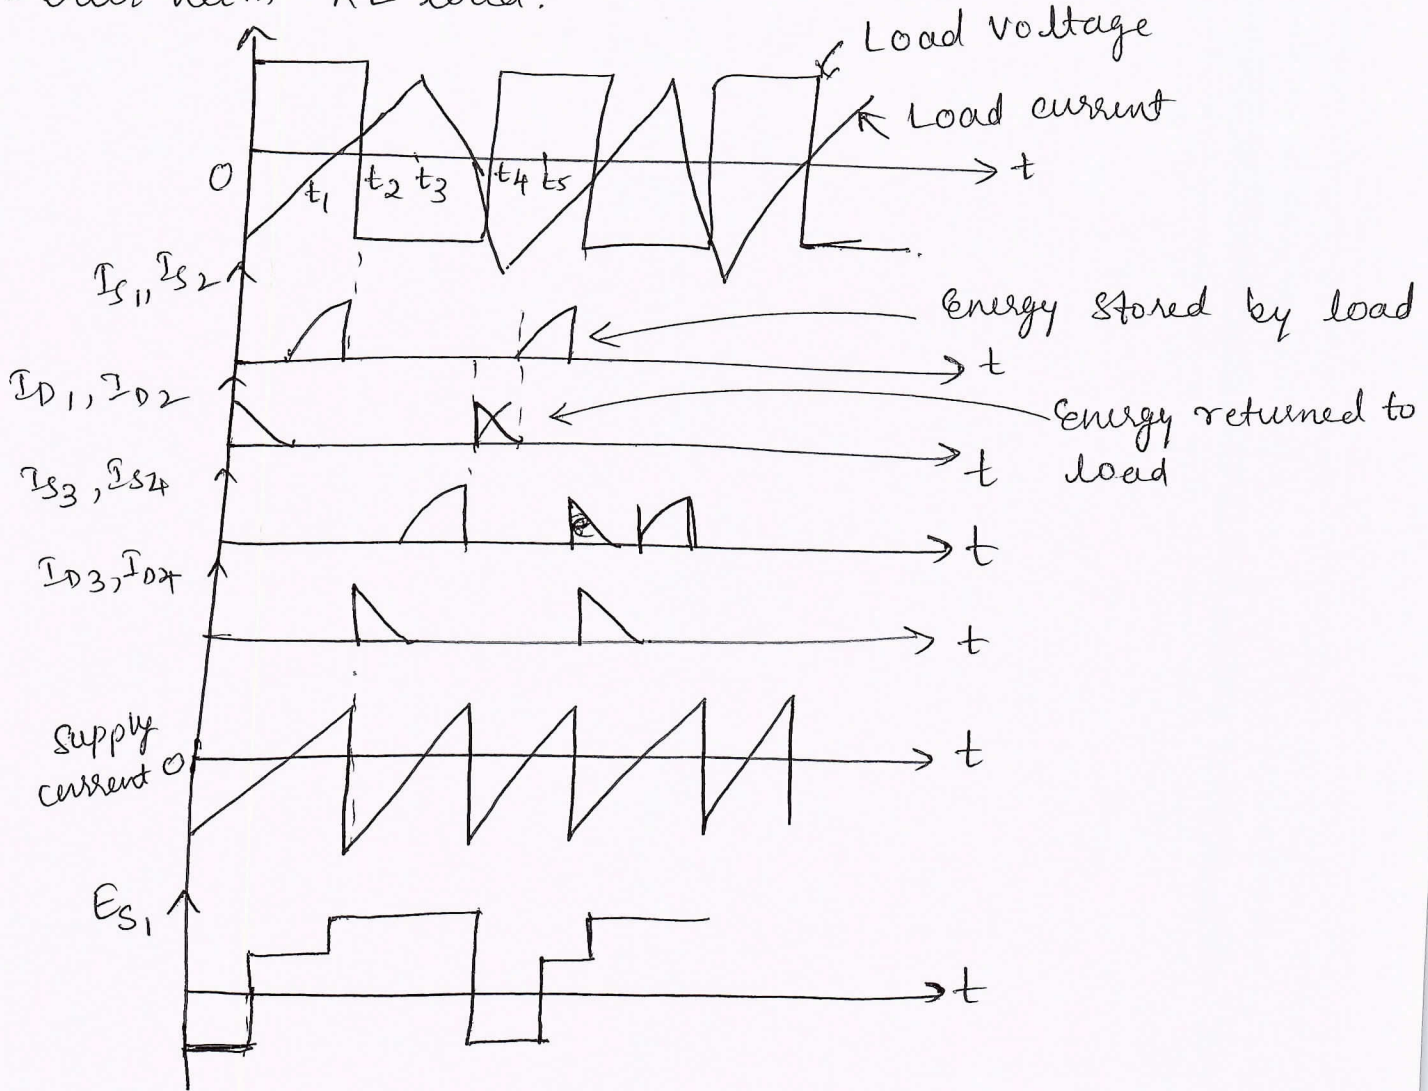 RL load.
Load voltage
Load current
0 t1 t2 t3 t4 t5 t
IS1, IS2
Energy stored by load
t
ID1, ID2
Energy returned to load
t
IS3, IS4
t
ID3, ID4
t
Supply current 0
t
ES1
t